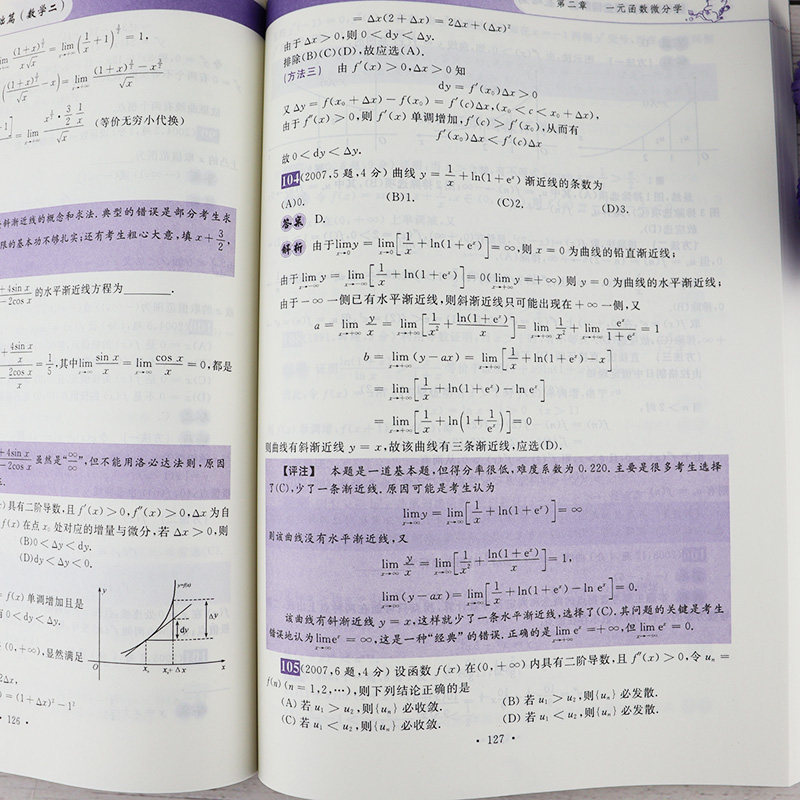 础篇(数学二)
lim_{x→∞} (1+x)^{1/x}/x√x = lim_{x→∞}(1/x+1)^{1/x} = 1,
((1+x)^{3/2}/√x − x) = lim_{x→∞} ((1+x)^{3/2} − x^{3/2})/√x
−1] = lim_{x→∞} x^{3/2}·3/2·1/x / √x (等价无穷小代换)
斜渐近线的概念和求法.典型的错误是部分考生求
限的基本功不够扎实;还有考生粗心大意,填 x + 3/2,
+4sin x / −2cos x 的水平渐近线方程为________.
+ 4sin x/x / − 2cos x/x = 1/5,其中lim_{x→∞} sin x/x = lim_{x→∞} cos x/x = 0,都是
+4sin x / −2cos x 虽然是“∞/∞”,但不能用洛必达法则,原因
)具有二阶导数,且 f′(x)>0,f″(x)>0,Δx 为自
f(x)在点 x₀ 处对应的增量与微分,若 Δx>0,则
(B)0<Δy<dy.
(D)dy<Δy<0.
= f(x)单调增加且是
有 0<dy<Δy.
(0,+∞),显然满足
2Δx,
) = (1+Δx)² − 1²
y
y=f(x)
Δy
dy
O
x₀
x₀+Δx
x
· 126 ·
第二章 一元函数微分学
= Δx(2+Δx) = 2Δx+(Δx)²
由于 Δx>0,则 0<dy<Δy.
排除(B)(C)(D),故应选(A).
(方法三) 由 f′(x)>0,Δx>0 知
dy = f′(x₀)Δx>0
又 Δy = f(x₀+Δx) − f(x₀) = f′(c)Δx,(x₀<c<x₀+Δx),
由于 f″(x)>0,则 f′(x) 单调增加,f′(c)>f′(x₀),从而有
f′(x₀)Δx<f′(c)Δx
故 0<dy<Δy.
104 (2007,5题,4分) 曲线 y = 1/x + ln(1+eˣ) 渐近线的条数为
(A)0. (B)1. (C)2. (D)3.
答案 D.
解析 由于 lim_{x→0} y = lim_{x→0}[1/x + ln(1+eˣ)] = ∞,则 x = 0 为曲线的铅直渐近线;
由于 lim_{x→−∞} y = lim_{x→−∞}[1/x + ln(1+eˣ)] = 0(lim_{x→+∞} y = +∞) 则 y = 0 为曲线的水平渐近线;
由于 −∞ 一侧已有水平渐近线,则斜渐近线只可能出现在 +∞ 一侧,又
a = lim_{x→+∞} y/x = lim_{x→+∞}[1/x² + ln(1+eˣ)/x] = lim_{x→+∞} 1/x² + lim_{x→+∞} eˣ/(1+eˣ) = 1
b = lim_{x→+∞}(y−ax) = lim_{x→+∞}[1/x + ln(1+eˣ) − x]
= lim_{x→+∞}[1/x + ln(1+eˣ) − ln eˣ]
= lim_{x→+∞}[1/x + ln(1+1/eˣ)] = 0
则曲线有斜渐近线 y = x,故该曲线有三条渐近线,应选(D).
【评注】 本题是一道基本题,但得分率很低,难度系数为 0.220.主要是很多考生选择
了(C),少了一条渐近线.原因可能是考生认为
lim_{x→∞} y = lim_{x→∞}[1/x + ln(1+eˣ)] = ∞
则该曲线没有水平渐近线,又
lim_{x→∞} y/x = lim_{x→∞}[1/x² + ln(1+eˣ)/x] = 1,
lim_{x→∞}(y−ax) = lim_{x→∞}[1/x + ln(1+eˣ) − ln eˣ] = 0.
该曲线有斜渐近线 y = x,这样就少了一条水平渐近线,选择了(C).其问题的关键是考生
错误地认为 lim_{x→∞} eˣ = ∞,这是一种“经典”的错误.正确的是 lim_{x→+∞} eˣ = +∞,但 lim_{x→−∞} eˣ = 0.
105 (2007,6题,4分) 设函数 f(x) 在(0,+∞)内具有二阶导数,且 f″(x)>0,令 uₙ =
f(n)(n = 1,2,…),则下列结论正确的是
(A) 若 u₁>u₂,则{uₙ}必收敛. (B) 若 u₁>u₂,则{uₙ}必发散.
(C) 若 u₁<u₂,则{uₙ}必收敛. (D) 若 u₁<u₂,则{uₙ}必发散.
· 127 ·